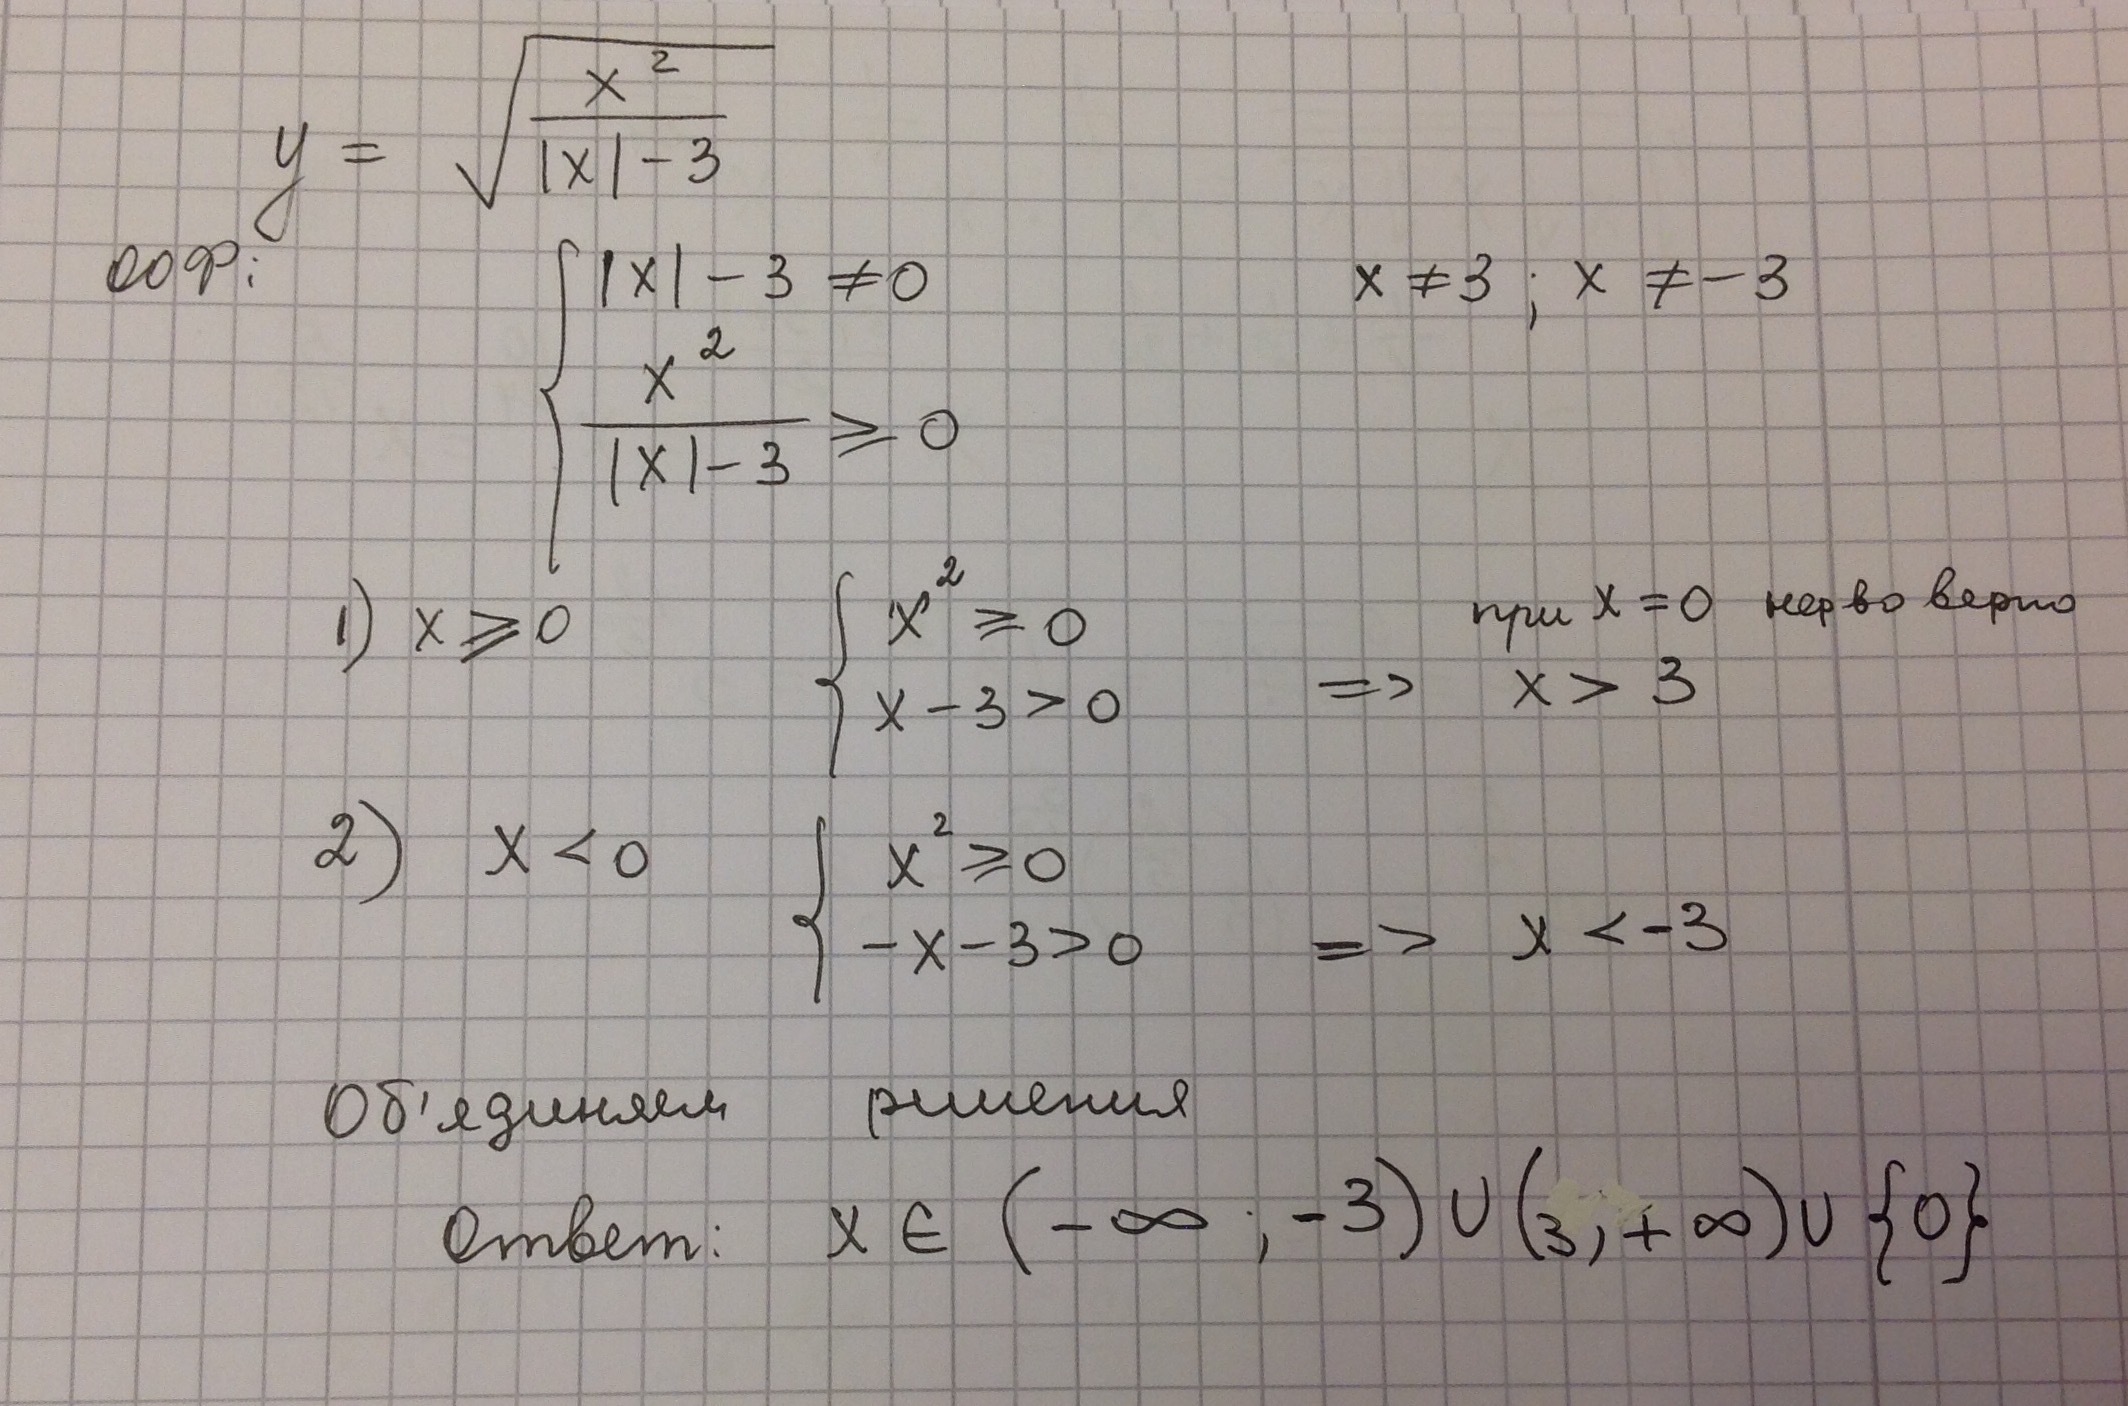 y = √(x²/(|x| - 3))
ООФ: { |x| - 3 ≠ 0    x ≠ 3 ; x ≠ -3
x²/(|x| - 3) ≥ 0
1) x ≥ 0 { x² ≥ 0    при x = 0 нер во верно
x - 3 > 0 => x > 3
2) x < 0 { x² ≥ 0
-x - 3 > 0 => x < -3
Об'единяем решения
Ответ: x ∈ (-∞ ; -3) ∪ (3; +∞) ∪ {0}